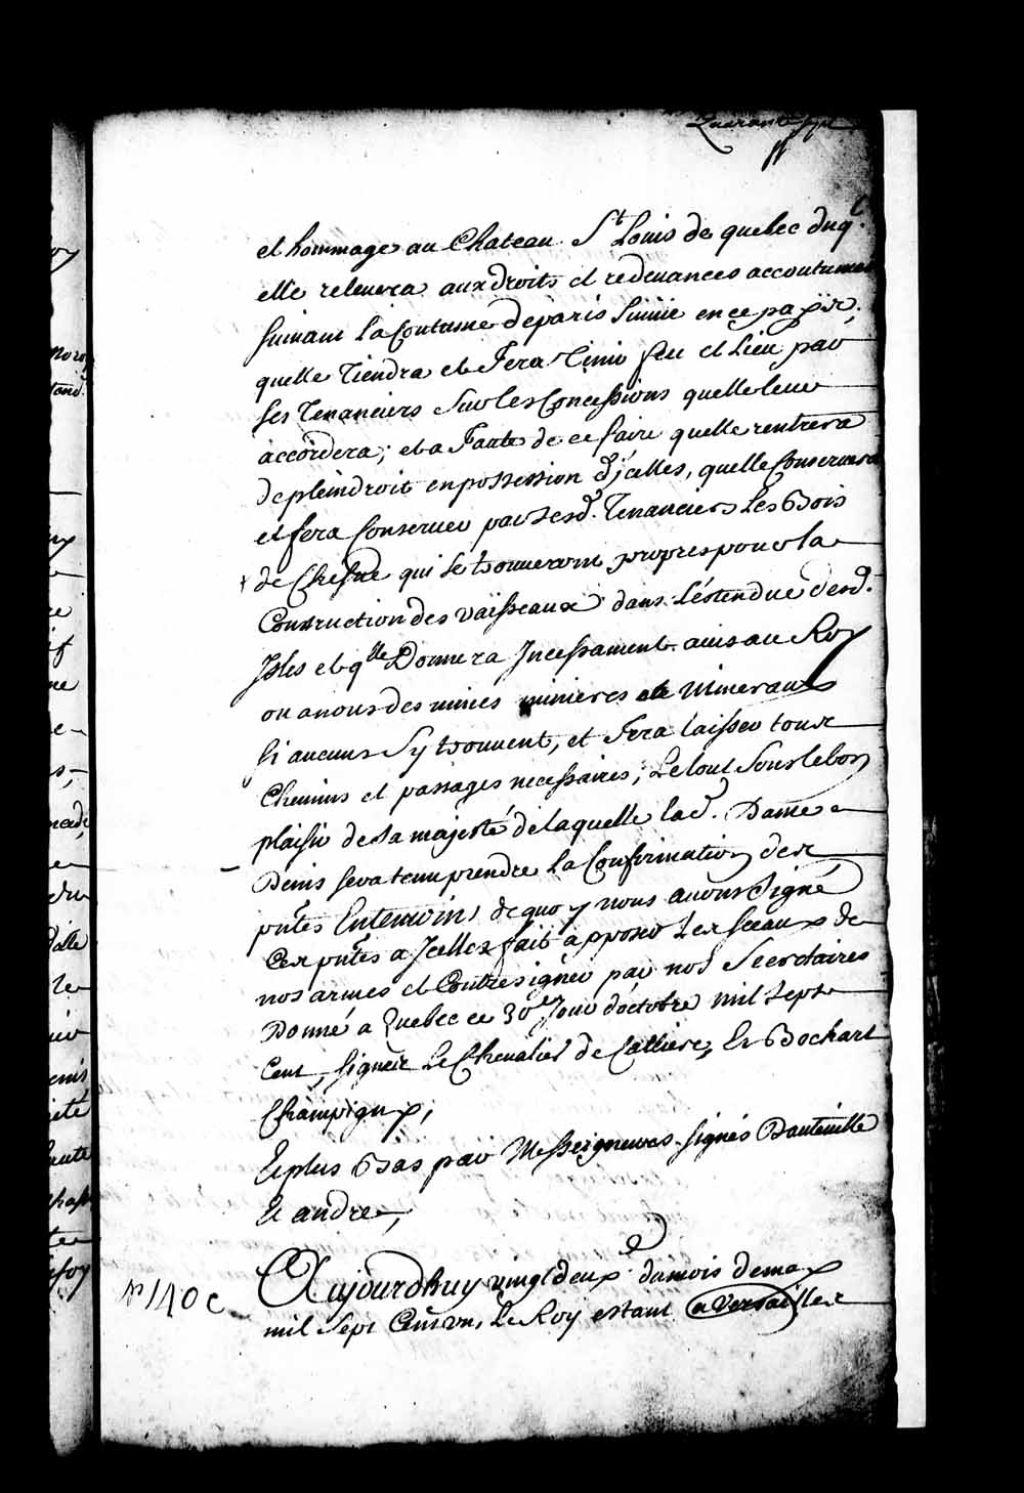 Quarante sept
et hommage au Chateau St Louis de quebec duql
elle releuera aux droits et redeuances accoutumés
suiuant la Coutume de paris suiuie en ce paÿs.
quelle tiendra et Fera tenir feu et lieu par
ses tenanciers sur les Concessions quelle leur
accordera; et a Faute de ce faire quelle rentrera
de plein droit en possession d'jcelles, quelle Conseruera
et fera Conseruer par sesd. tenanciers les Bois
de Chesne qui se trouueront propres pour la
Construction des vaisseaux dans l'éstendue desd.
Isles et qlle Donnera Jncessament auis au Roy
ou a nous des mines minieres et Mineraux
si aucuns s'y trouuent, et Fera laisser tous
Chemins et passages necessaires; Le tout sous le bon
plaisir de sa majesté de laquelle lad. Dame
Denis sera tenu prendre la Confirmation des
pntes Entemoins de quoy nous auons signé
Ces pntes a Jcelles fait apposer les sceaux de
nos armes et Contresigner par nos Secretaires
Donné a Quebec ce 30e Jour d'octobre mil sept
Cent, signeie Le Cheualier de Calliere, Et Bochart
Champigny;
Et plus Bas par Messeigneurs signés Hauteuille
Et andre,
Aujourdhuy vingt deux du mois de may
mil sept Cens vn, Le Roy estant a Versailles
No 140 c